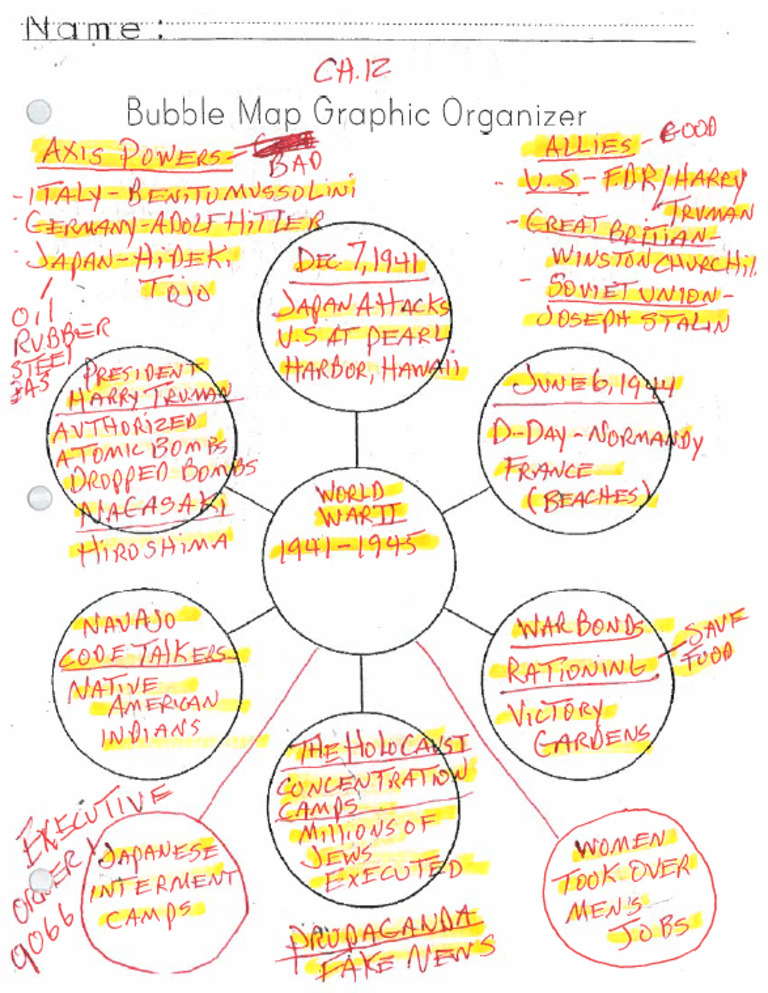 Name:
CH.12
Bubble Map Graphic Organizer
AXIS POWERS - BAD
- ITALY - BENITO MUSSOLINI
- GERMANY - ADOLF HITLER
- JAPAN - HIDEKI
TOJO
OIL
RUBBER
STEEL
GAS
ALLIES - GOOD
- U.S - FDR/HARRY
TRUMAN
- GREAT BRITIAN -
WINSTON CHURCHIL
- SOVIET UNION -
JOSEPH STALIN
DEC. 7, 1941
JAPAN ATTACKS
U.S AT PEARL
HARBOR, HAWAII
PRESIDENT
HARRY TRUMAN
AUTHORIZED
ATOMIC BOMBS
DROPPED BOMBS
NAGASAKI
HIROSHIMA
JUNE 6, 1944
D-DAY - NORMANDY
FRANCE
(BEACHES)
WORLD
WAR II
1941-1945
NAVAJO
CODE TALKERS
NATIVE
AMERICAN
INDIANS
WAR BONDS
RATIONING - SAVE
FOOD
VICTORY
GARDENS
THE HOLOCAUST
CONCENTRATION
CAMPS
MILLIONS OF
JEWS
EXECUTED
EXECUTIVE
ORDER
9066
JAPANESE
INTERMENT
CAMPS
WOMEN
TOOK OVER
MEN'S
JOBS
PROPAGANDA
FAKE NEWS